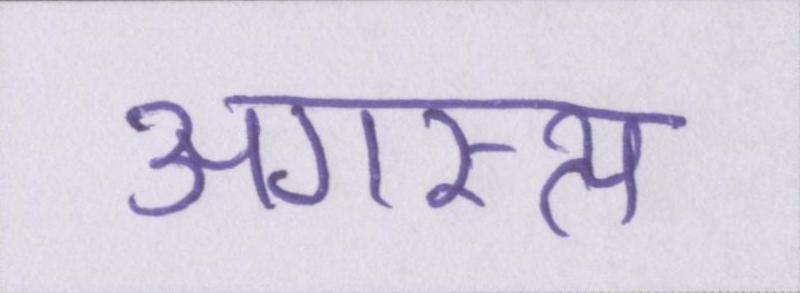 अगस्त्य